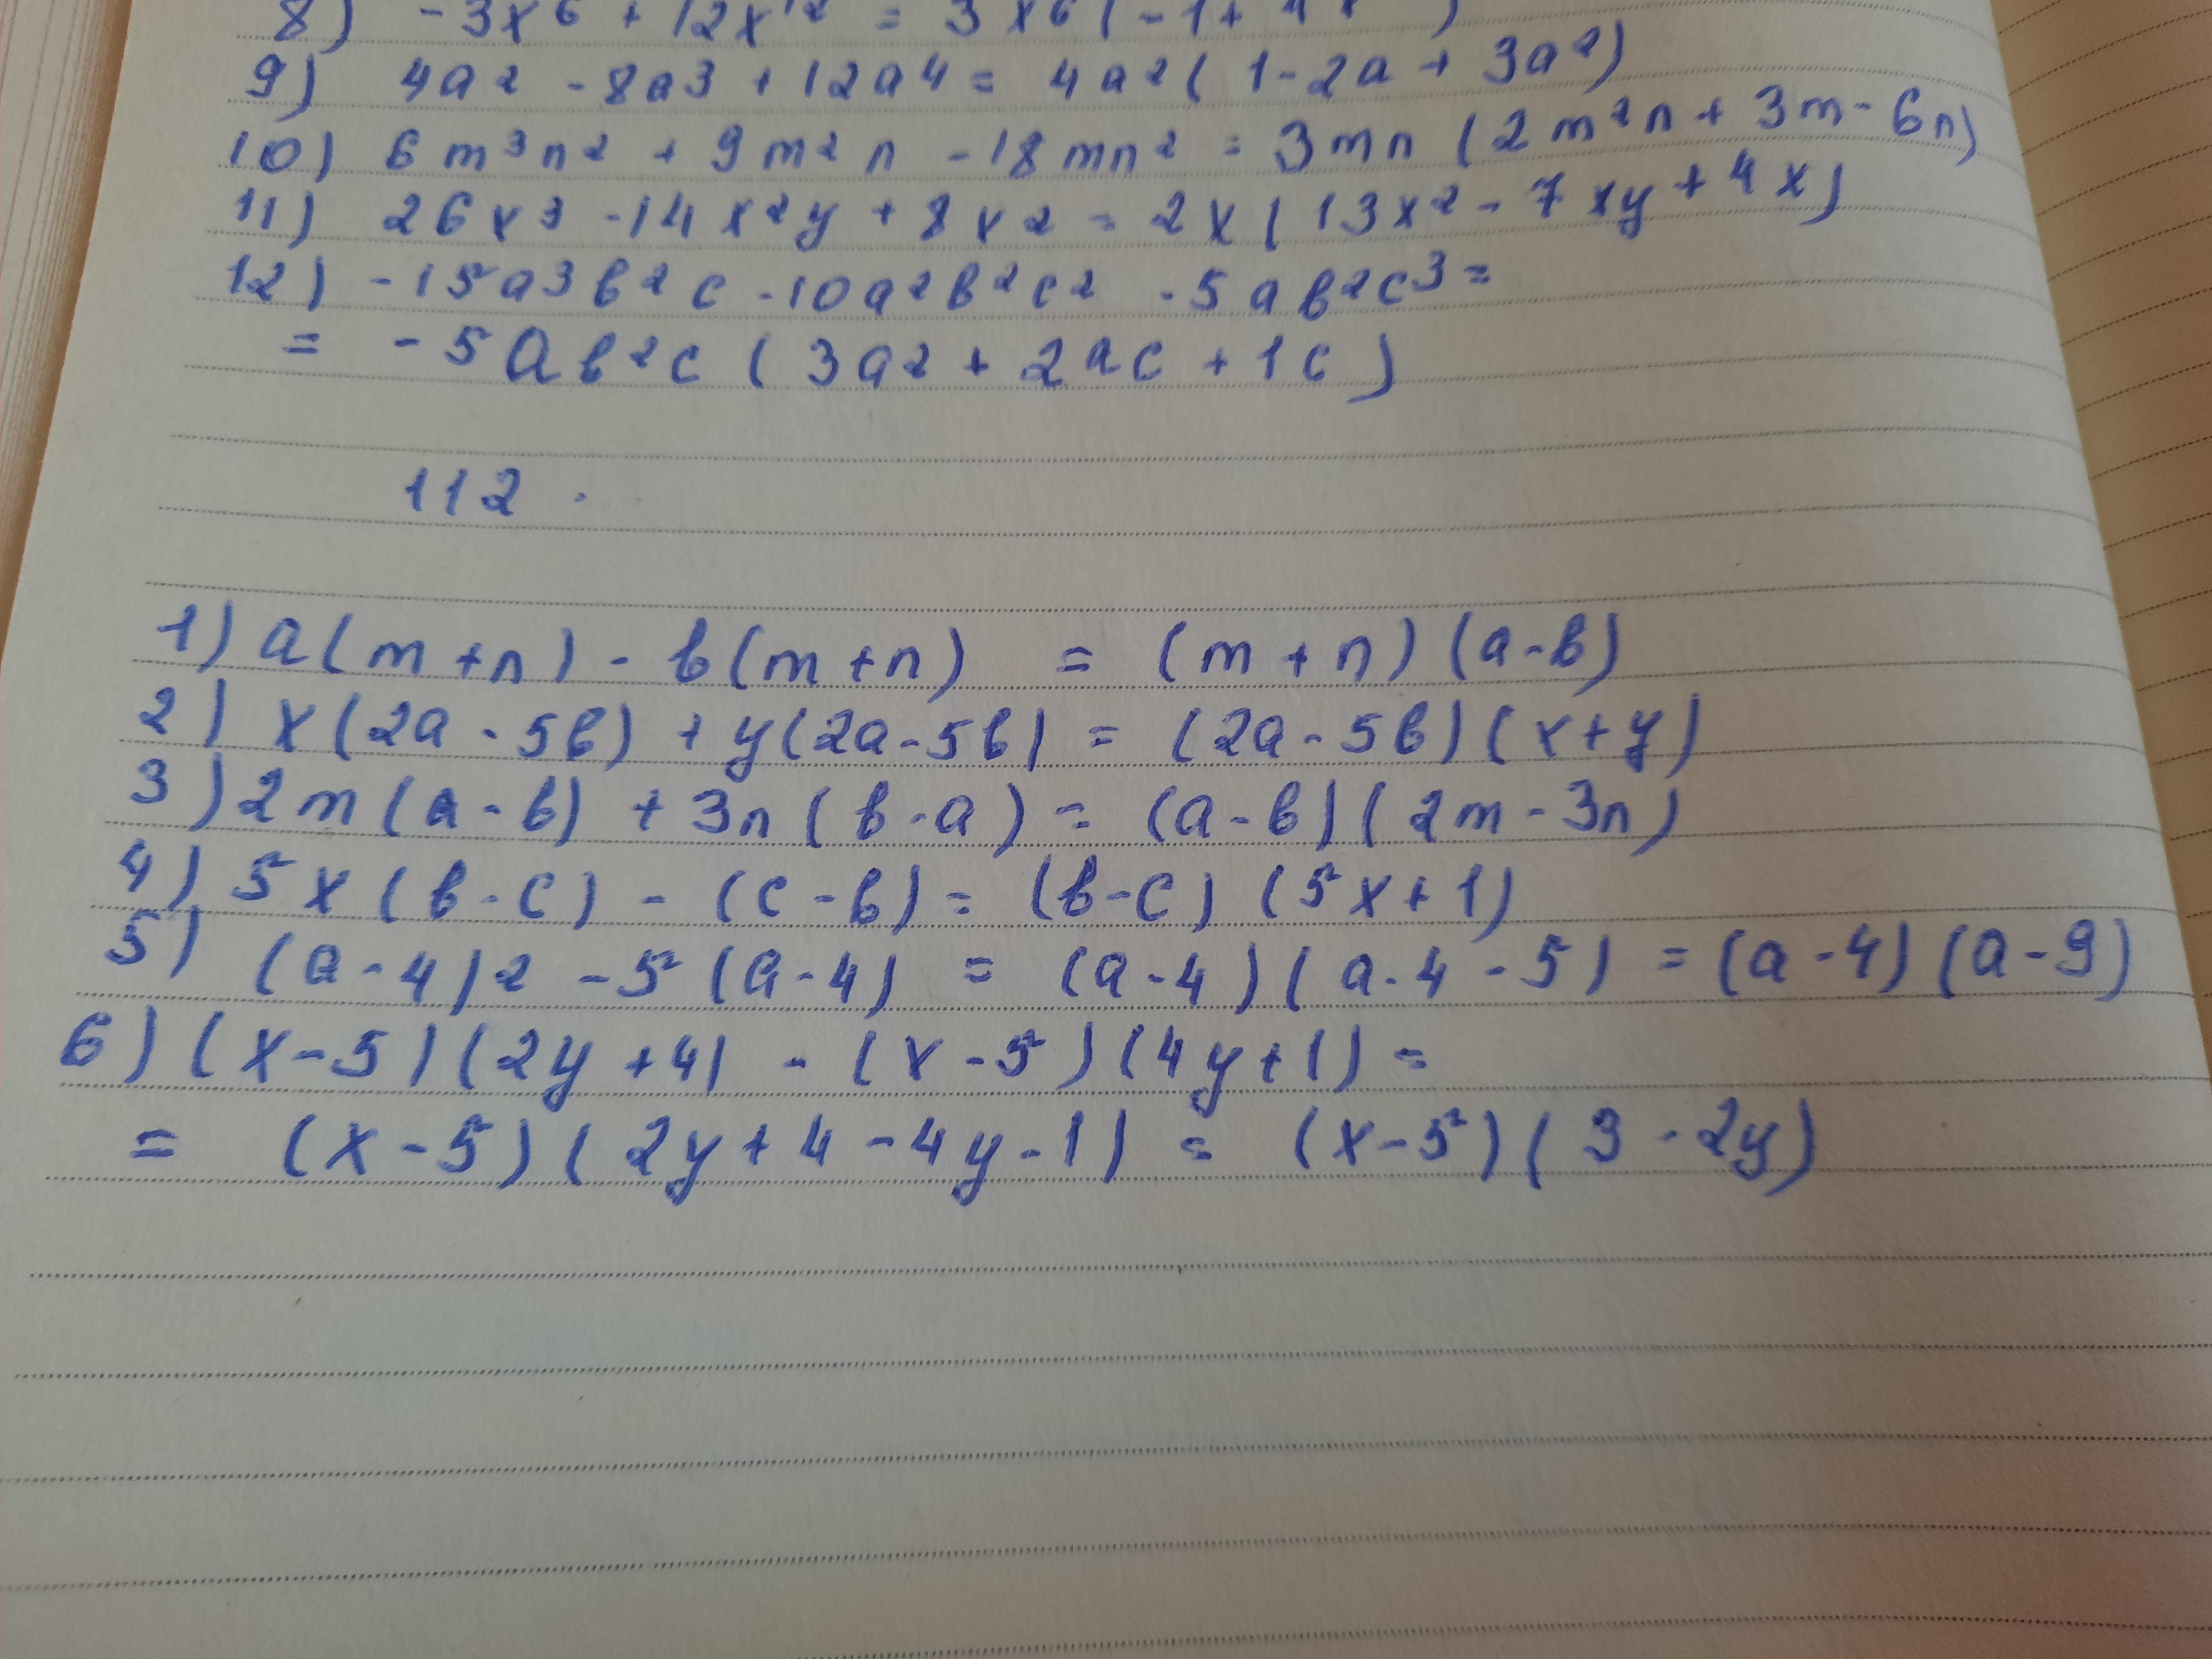 8) -3x⁶ + 12x¹² = 3x⁶(-1+4x
9) 4a² - 8a³ + 12a⁴ = 4a²(1-2a+3a²)
10) 6m³n² + 9m²n - 18mn² = 3mn(2m²n+3m-6n)
11) 26x³ - 14x²y + 8x² = 2x(13x²-7xy+4x)
12) -15a³b²c - 10a²b²c² - 5ab²c³ =
= -5ab²c(3a² + 2ac + 1c)
112.
1) a(m+n) - b(m+n) = (m+n)(a-b)
2) x(2a-5b) + y(2a-5b) = (2a-5b)(x+y)
3) 2m(a-b) + 3n(b-a) = (a-b)(2m-3n)
4) 5x(b-c) - (c-b) = (b-c)(5x+1)
5) (a-4)² - 5(a-4) = (a-4)(a-4-5) = (a-4)(a-9)
6) (x-5)(2y+4) - (x-5)(4y+1) =
= (x-5)(2y+4-4y-1) = (x-5)(3-2y)